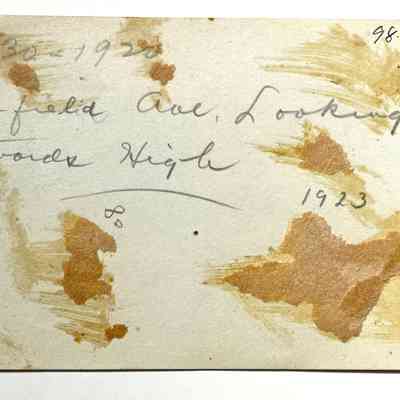 98-
30-1920
-field Ave. Looking
wards High
1923
80